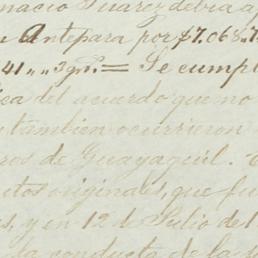 nacio Suarez debia a
n Antepara por $7.068„
41 „„ 3 grs. = Se cumpl
ica del acuerdo que no
tambien ocurrieron
ros de Guayaquil.
utos originales, que fu
s, y en 12 de Julio del
la conducta de la